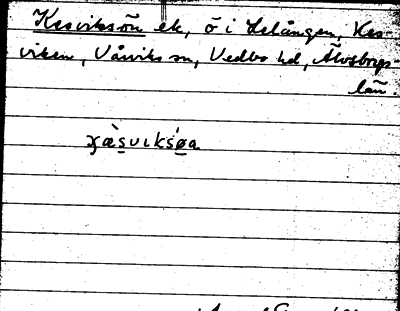 Kasviksön ek, ö i Östången, Kas-
viken, Vårviks sn, Vedbo hd, Älvsborgs
län.
χæ̀sviksø̀a